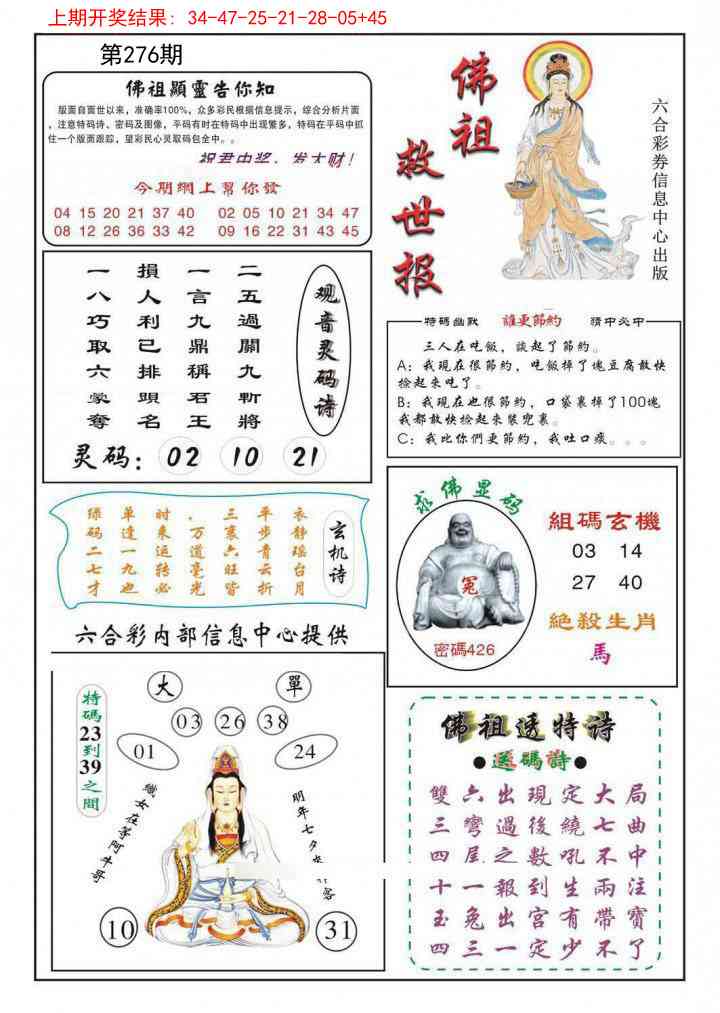 上期开奖结果：34-47-25-21-28-05+45
第276期
佛祖顯靈告你知
版面自面世以来，准确率100%，众多彩民根据信息提示，综合分析片面
，注意特码诗、密码及图像，平码有时在特码中出现繁多，特码在平码中抓
住一个版面跟踪，望彩民心灵取码包全中。。
祝君中奖，发大财！
今期網上幫你發
04 15 20 21 37 40 02 05 10 21 34 47
08 12 26 36 33 42 09 16 22 31 43 45
佛祖
救世报
六合彩券信息中心出版
一損一二
八人言五
巧利九過
取己鼎關
六排稱九
豪頭君斬
奪名王將
观音灵码诗
灵码：02 10 21
特碼幽默 誰更節約 猜中必中
三人在吃飯，談起了節約。
A：我現在很節約，吃飯掉了塊豆腐敢快
撿起來吃了。
B：我現在也很節約，口袋裏掉了100塊
我都敢快撿起來裝兜裏。
C：我比你們更節約，我吐口痰。。。
绿单时，三平衣
码逢来万裏步静
二一运道六青瑶
七九转毫旺云台
才也必光皆折月
玄机诗
求佛显码
冤
密碼426
組碼玄機
03 14
27 40
絶殺生肖
馬
六合彩内部信息中心提供
大 單
03 26 38
01 24
特碼23到39之間
織女在等阿牛哥
明年七夕
客
10 31
佛祖透特诗
●送碼詩●
雙六出現定大局
三彎過後繞七曲
四尾之數吼不中
十一報到生兩注
玉兔出宮有帶寶
四三一定少不了